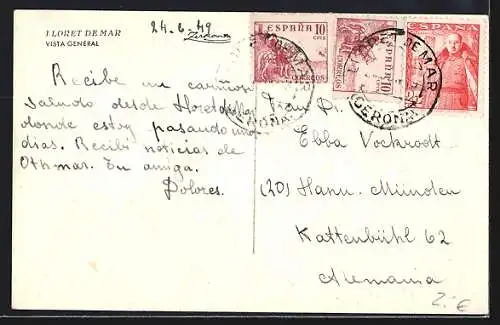 LLORET DE MAR
VISTA GENERAL
24-6-49
ESPAÑA 10
CTS
CORREOS
ESPAÑA 10
CORREOS
LLORET DE MAR
(GERONA)
Recibe un cariñoso
saludo desde Lloret de Mar
donde estoy pasando unos
dias. Recibi noticias de
Othmar. Tu amiga.
Dolores.
Frau Dr.
Ebba Vockrodt
(20) Hann. Münden
Kattenbühl 62
Alemania
2.- €